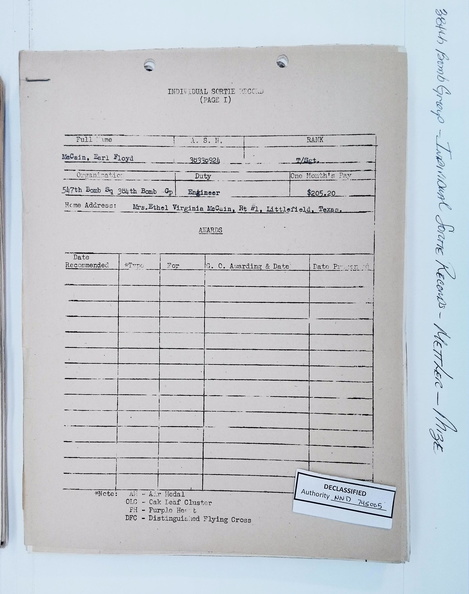 INDIVIDUAL SORTIE RECORD
(PAGE I)
Full Name A. S. N. RANK
McCain, Earl Floyd T/Sgt.
Organization Duty One Month's Pay
547th Bomb Sq 384th Bomb Gp Engineer $205.20
Home Address: Mrs.Ethel Virginia McCain, Rt #1, Littlefield, Texas.
AWARDS
Date
Recommended *Type For G. O. Awarding & Date Date
*Note: AM - Air Medal
OLC - Oak Leaf Cluster
PH - Purple Heart
DFC - Distinguished Flying Cross
DECLASSIFIED
Authority NND 745005
384th Bomb Group - Individual Sortie Record - Mettler - Mize